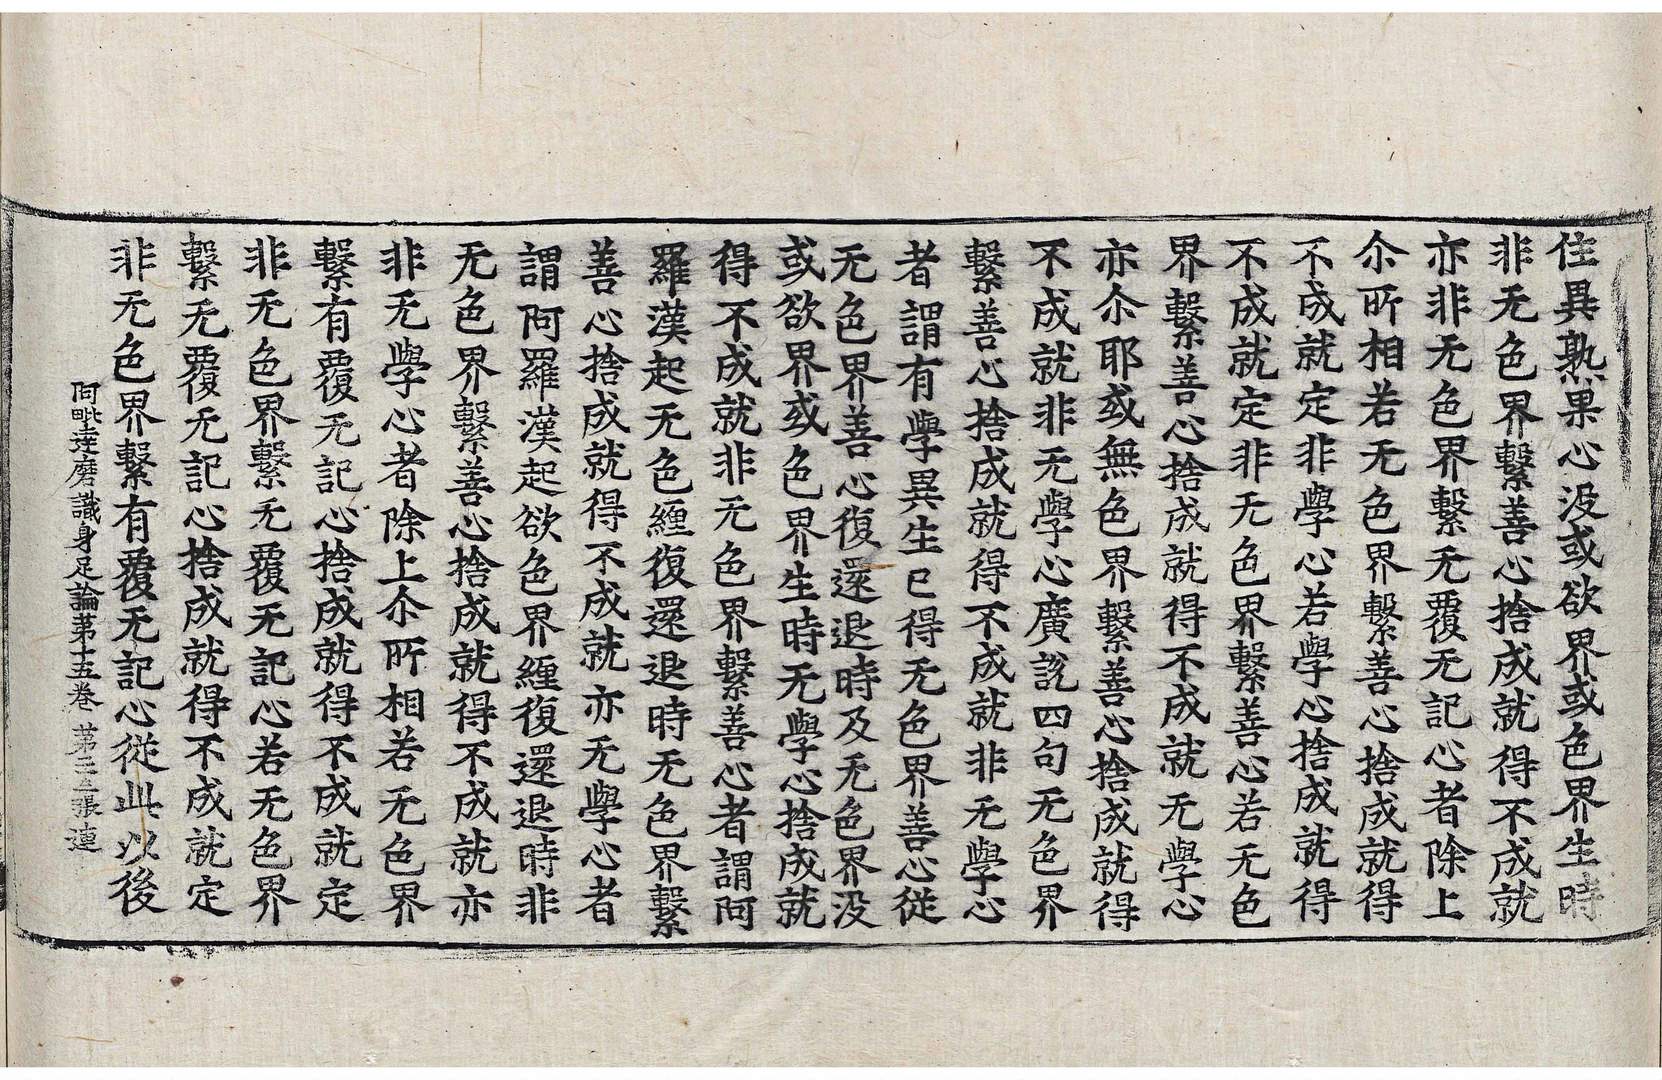 住異熟果心没或欲界或色界生時
非无色界繫善心捨成就得不成就
亦非无色界繫无覆无記心者除上
尒所相若无色界繫善心捨成就得
不成就定非學心若學心捨成就得
不成就定非无色界繫善心若无色
界繫善心捨成就得不成就无學心
亦尒耶或無色界繫善心捨成就得
不成就非无學心廣說四句无色界
繫善心捨成就得不成就非无學心
者謂有學異生已得无色界善心從
无色界善心復還退時及无色界没
或欲界或色界生時无學心捨成就
得不成就非无色界繫善心者謂阿
羅漢起无色纏復還退時无色界繫
善心捨成就得不成就亦无學心者
謂阿羅漢起欲色界纏復還退時非
无色界繫善心捨成就得不成就亦
非无學心者除上尒所相若无色界
繫有覆无記心捨成就得不成就定
非无色界繫无覆无記心若无色界
繫无覆无記心捨成就得不成就定
非无色界繫有覆无記心從此以後
阿毗達磨識身足論第十五卷 第二三張 連